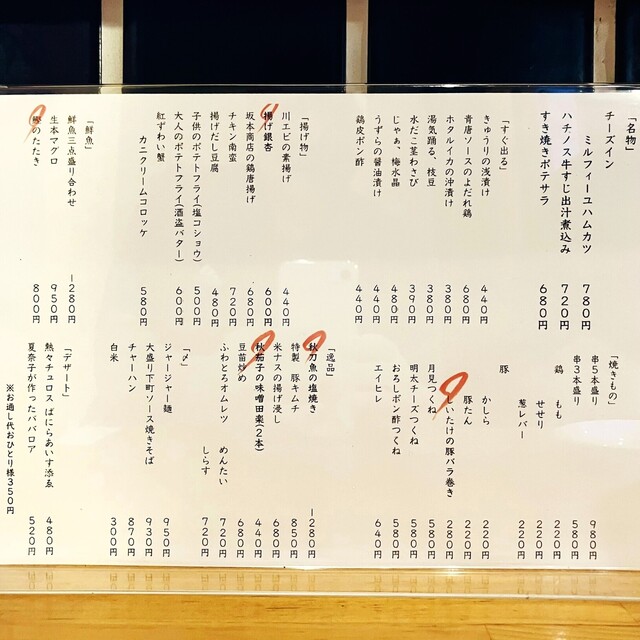 「名物」
チーズイン
ミルフィーユハムカツ 780円
ハチノス牛すじ出汁煮込み 720円
すき焼きポテサラ 680円
「すぐ出る」
きゅうりの浅漬け 440円
青唐ソースのよだれ鶏 680円
ホタルイカの沖漬け 380円
湯気踊る、枝豆 380円
水だこ茎わさび 390円
じゃぁ、梅水晶 480円
うずらの醤油漬け 440円
鶏皮ポン酢 440円
「揚げ物」
川エビの素揚げ 440円
揚げ銀杏 600円
坂本商店の鶏唐揚げ 680円
チキン南蛮 720円
揚げだし豆腐 480円
子供のポテトフライ(塩コショウ) 500円
大人のポテトフライ(酒盗バター) 600円
紅ずわい蟹
カニクリームコロッケ 580円
「鮮魚」
鮮魚三点盛り合わせ 1280円
生本マグロ 950円
鰹のたたき 800円
「焼きもの」
串5本盛り 980円
串3本盛り 580円
鶏 もも 220円
せせり 220円
葱レバー 220円
豚 かしら 220円
豚たん 220円
しいたけの豚バラ巻き 280円
月見つくね 580円
明太チーズつくね 580円
おろしポン酢つくね 580円
エイヒレ 640円
「逸品」
秋刀魚の塩焼き 1280円
特製 豚キムチ 850円
米ナスの揚げ浸し 680円
秋茄子の味噌田楽(2本) 440円
豆苗炒め 680円
ふわとろオムレツ めんたい 720円
しらす 720円
「〆」
ジャージャー麺 950円
大盛り下町ソース焼きそば 930円
チャーハン 870円
白米 300円
「デザート」
熱々チュロス ばにらあいす添ゑ 480円
夏奈子が作ったババロア 520円
※お通し代おひとり様350円